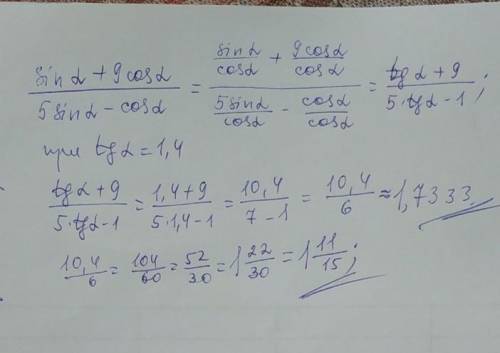 (sinα + 9cosα)/(5sinα - cosα) = (sinα/cosα + 9cosα/cosα)/(5sinα/cosα - cosα/cosα) = (tgα + 9)/(5·tgα - 1);
при tgα = 1,4
(tgα + 9)/(5·tgα - 1) = (1,4 + 9)/(5·1,4 - 1) = 10,4/(7 - 1) = 10,4/6 ≈ 1,7333
10,4/6 = 104/60 = 52/30 = 1 22/30 = 1 11/15;